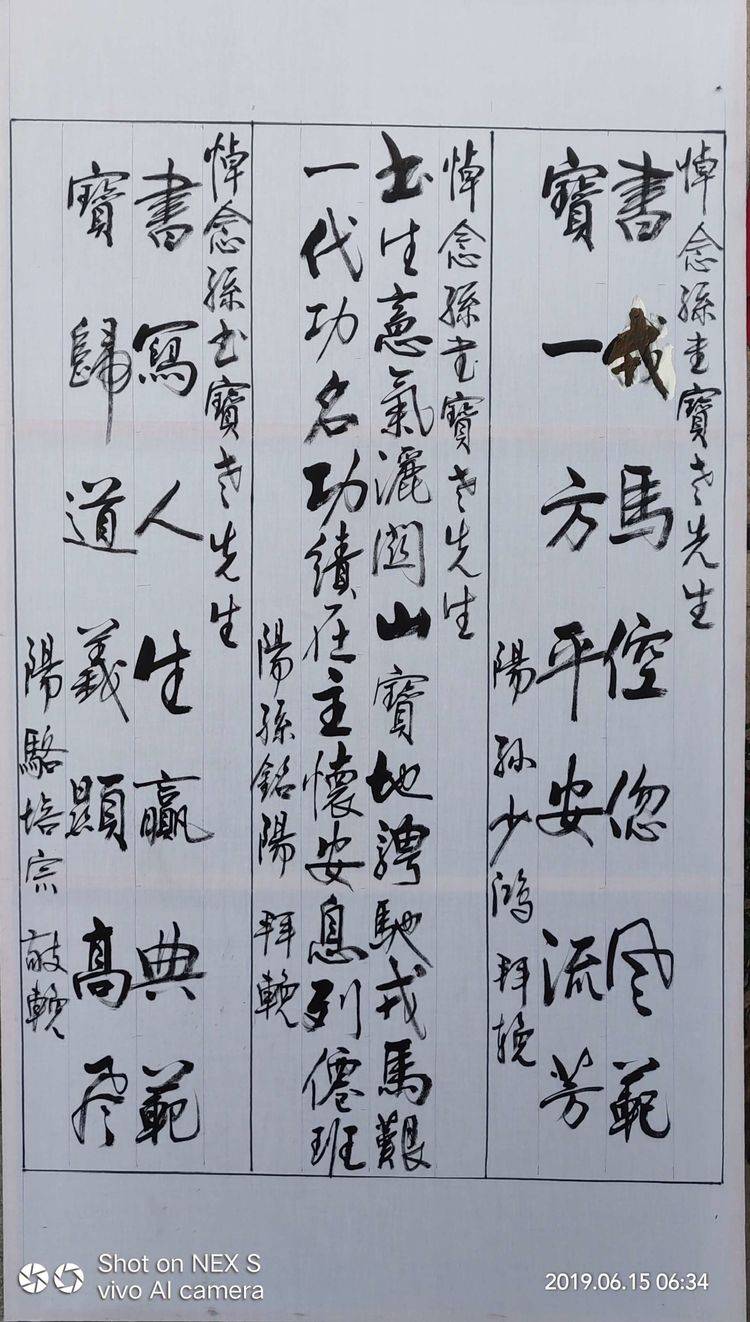 悼念孫書寶老先生
書戎馬倥偬風範
寶一方平安流芳
陽孙少鴻拜挽
悼念孫書寶老先生
書生意氣灑關山寶地騁馳戎馬艱
一代功名功績在主懷安息列僊班
陽孫銘陽拜輓
悼念孫書寶老先生
書寫人生贏典範
寶歸道義顯高
陽駱培宗敬輓
Shot on NEX S
vivo AI camera
2019.06.15 06:34